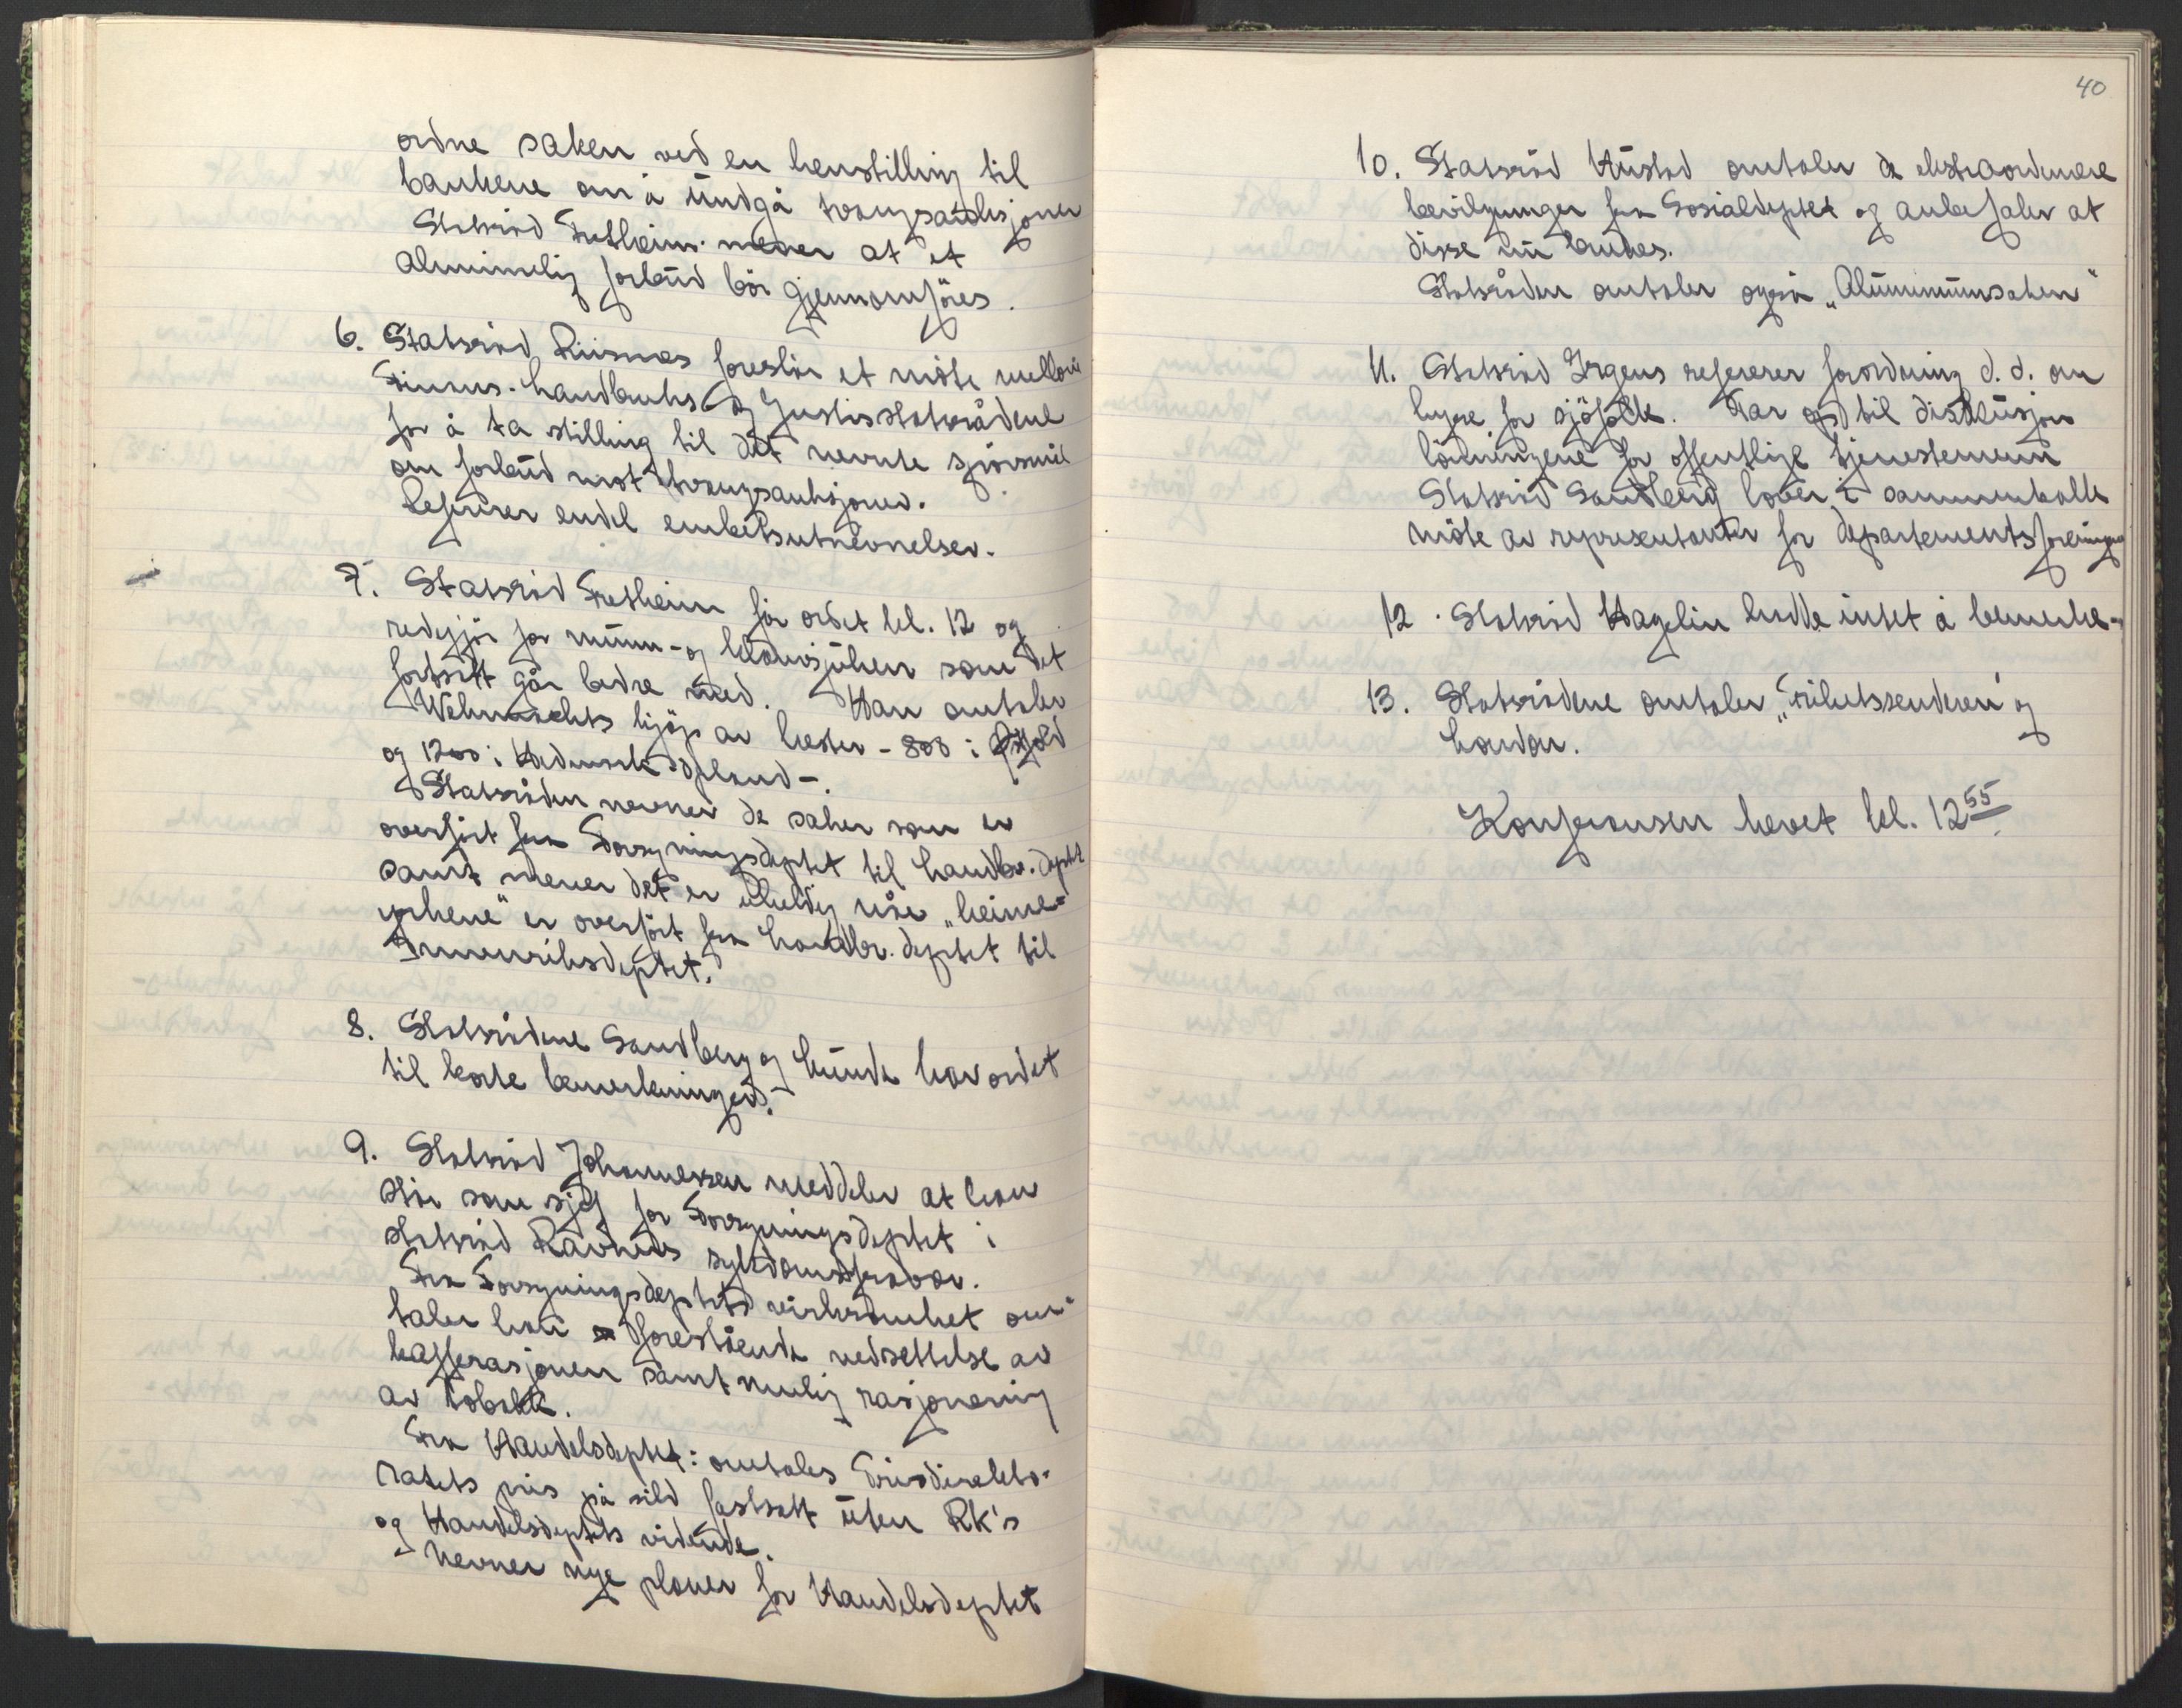 ordne saken ved en henstilling til
bankene om å undgå tvangsauksjoner
Statsråd Fretheim mener at et
almindelig forbud bör gjennomföres.
6. Statsråd Riisnæs foreslår et möte mellom
Finans-, Landbruks- og Justisstatsrådene
for å ta stilling til det nevnte spörsmål
om forbud mot tvangsauksjoner.
Refererer endel embetsutnevnelser.
7. Statsråd Fretheim får ordet kl. 12 og
redegjör for munn- og klovsjuken som det
fortsatt går bedre med. Han omtaler
Wehrmachts kjöp av hester - 800 i Östfold
og 1200 i Hedmark Opland -.
Statsråden nevner de saker som er
overfört fra Forsyningsdeptet til Landbr. deptet
samt mener det er uheldig når „heime-
yrkene" er overfört fra Landbr. deptet til
Innenriksdeptet.
8. Statsrådene Sandberg og Lunde har ordet
til korte bemerkninger.
9. Statsråd Johannessen meddeler at han
står som sjef for Forsyningsdeptet i
statsråd Ravners sykdomsfravær.
Fra Forsyningsdeptets virksomhet om-
taler han forestående nedsettelse av
kafferasjonen samt mulig rasjonering
av tobakk.
Fra Handelsdeptet: omtales Prisdirekto-
ratets pris på sild fastsatt uten RK's
og Handelsdeptets vidende.
Nevner nye planer for Handelsdeptet
40
10. Statsråd Hustad omtaler de ekstraordinære
bevilgninger fra Sosialdeptet og anbefaler at
disse må brukes.
Statsråden omtaler også „Aluminiumsaken"
11. Statsråd Irgens refererer forordning d.d. om
hyre for sjöfolk. Tar op til diskusjon
lönningene for offentlige tjenestemenn
Statsråd Sandberg lover å sammenkalle
möte av representanter for departementsforeningene
12. Statsråd Hagelin hadde intet å bemerke -
13. Statsrådene omtaler „Frihetssenderen" og
London.
Konferansen hevet kl. 12 55